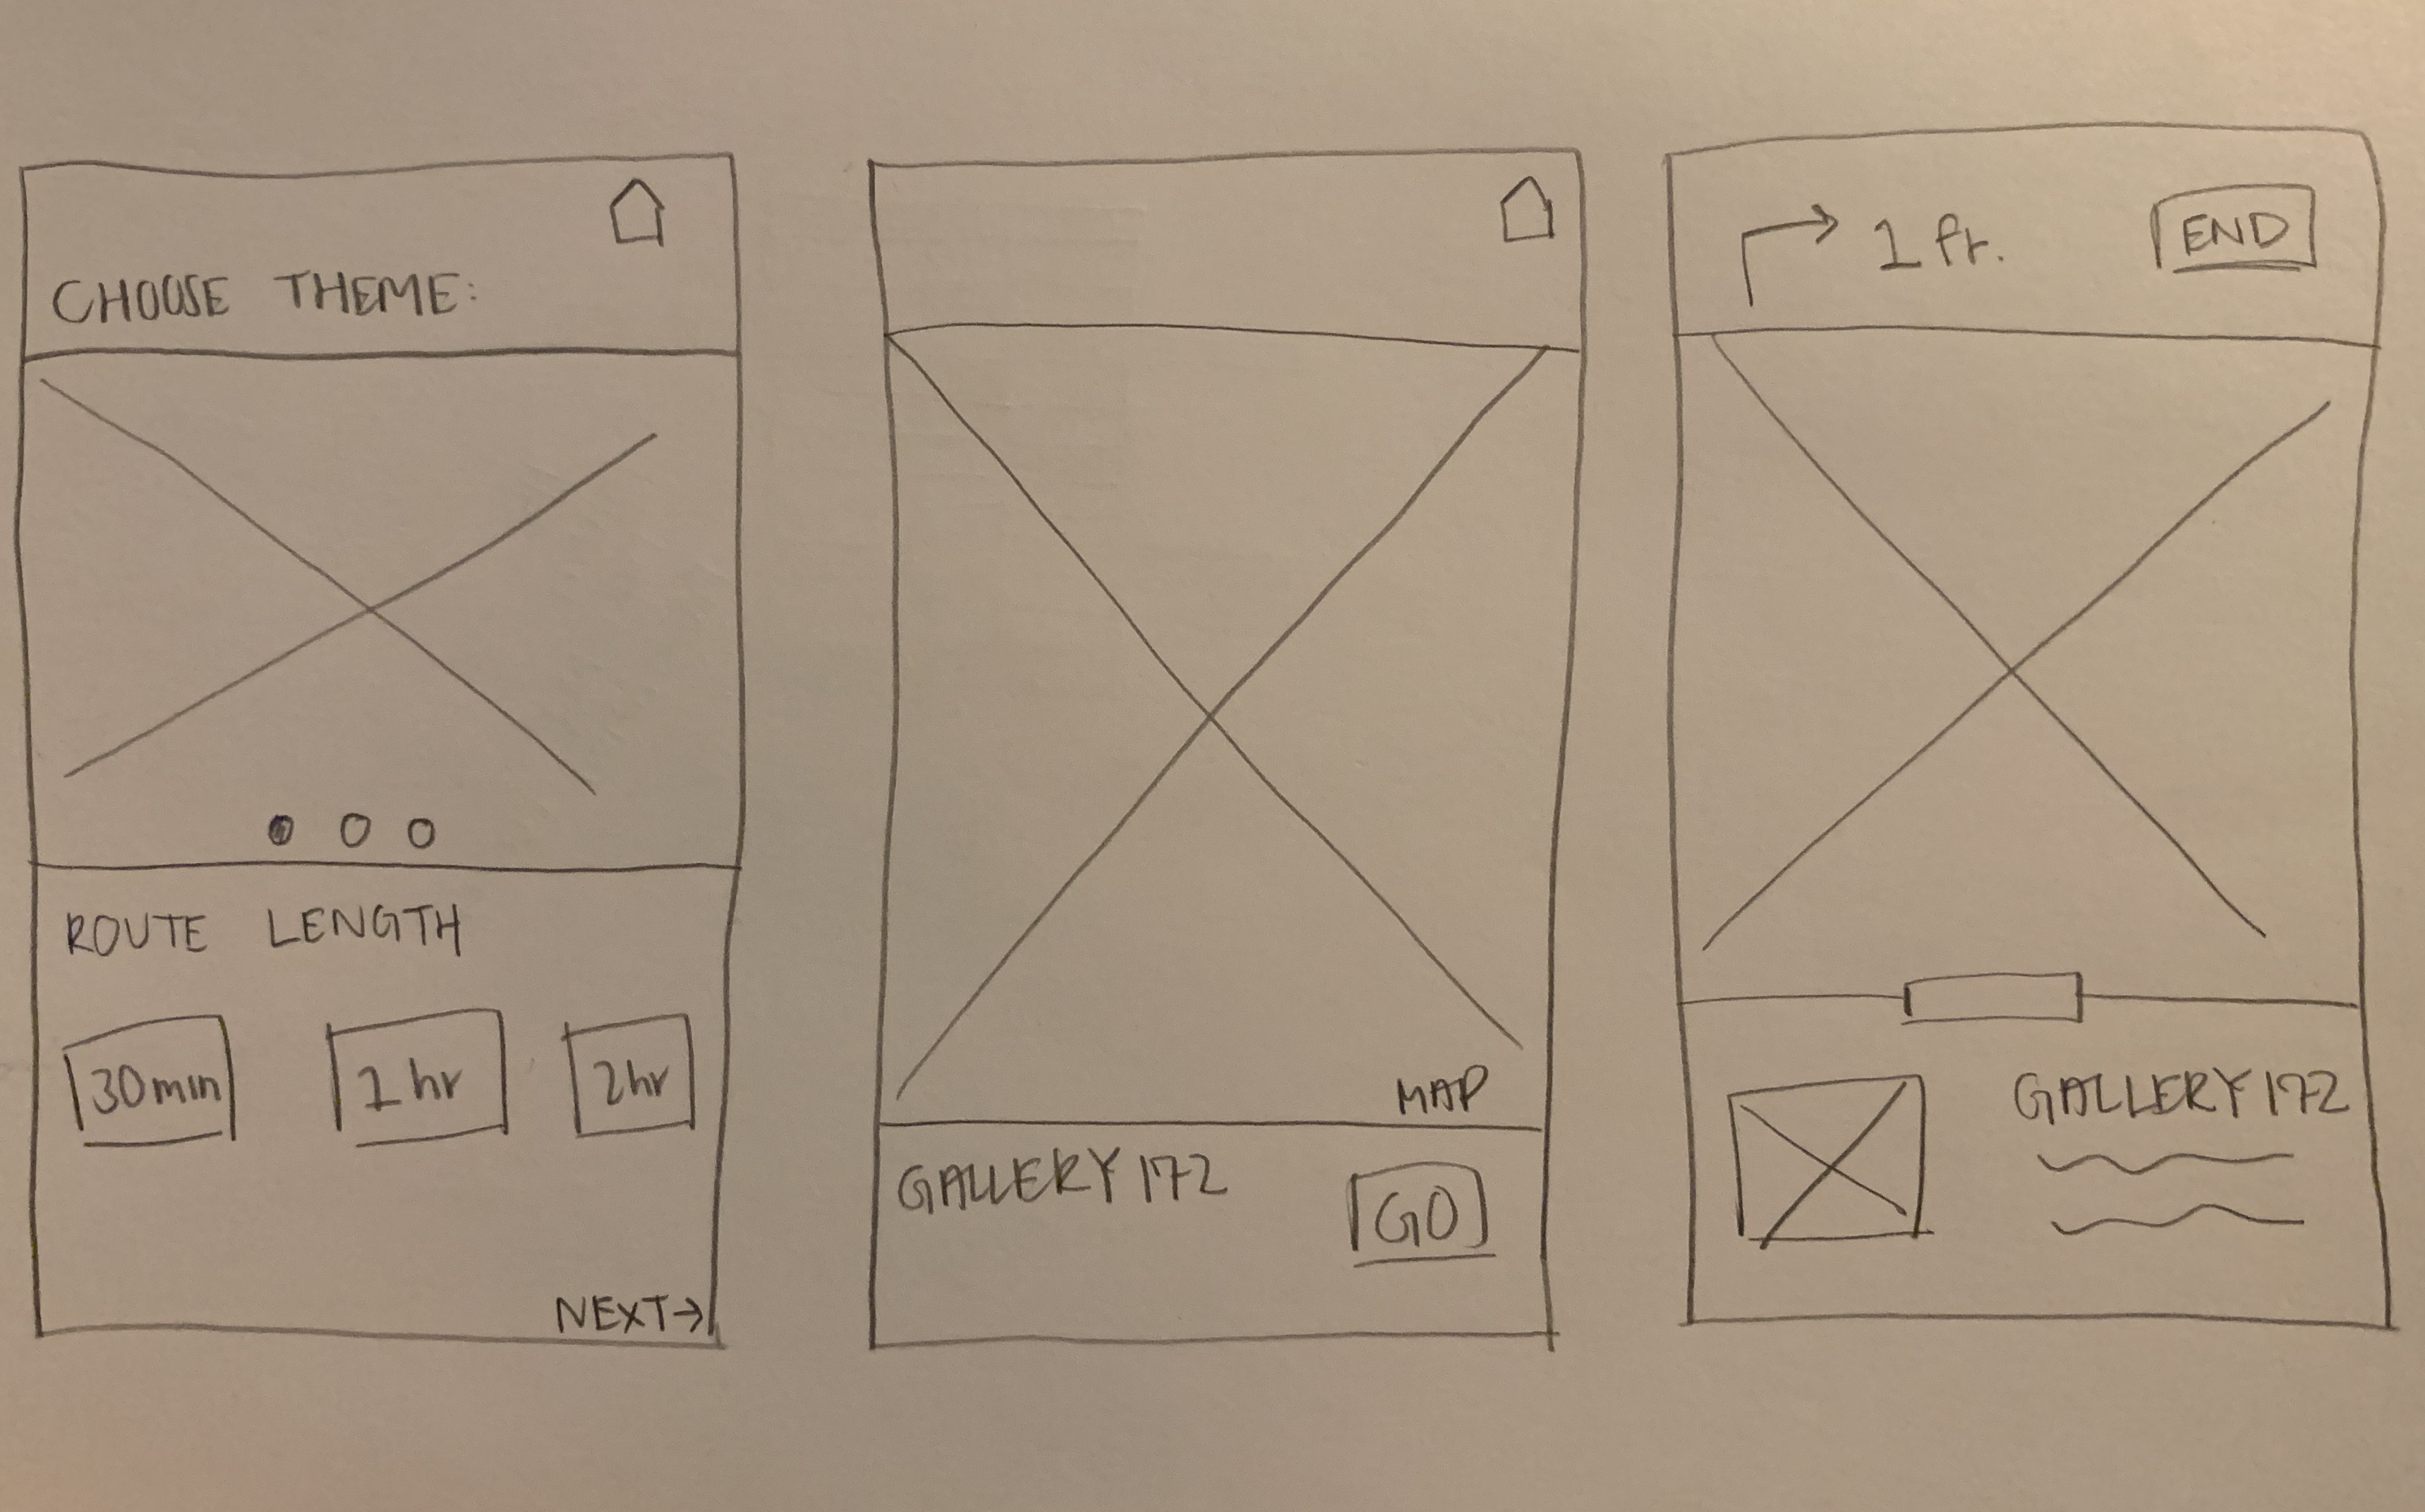 CHOOSE THEME:
ROUTE LENGTH
30min 1 hr 2hr
NEXT→
MAP
GALLERY 172
GO
1 ft.
END
GALLERY 172